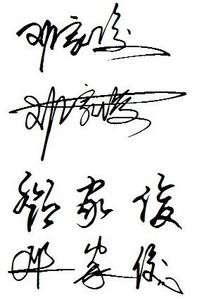 邓家俊
邓家俊
鄧家俊
邓家俊